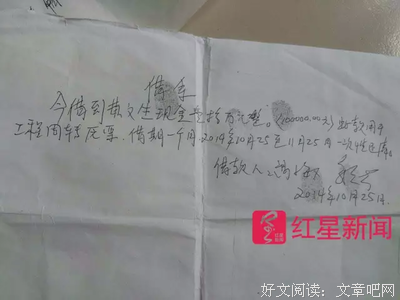 借条
今借到黄文生现金壹拾万元整。(100000.00元)此款用于
工程周转。借期一个月2014年10月25至11月25日一次性还清。
借款人:
2014年10月25日
红星新闻
好文阅读:文章吧网